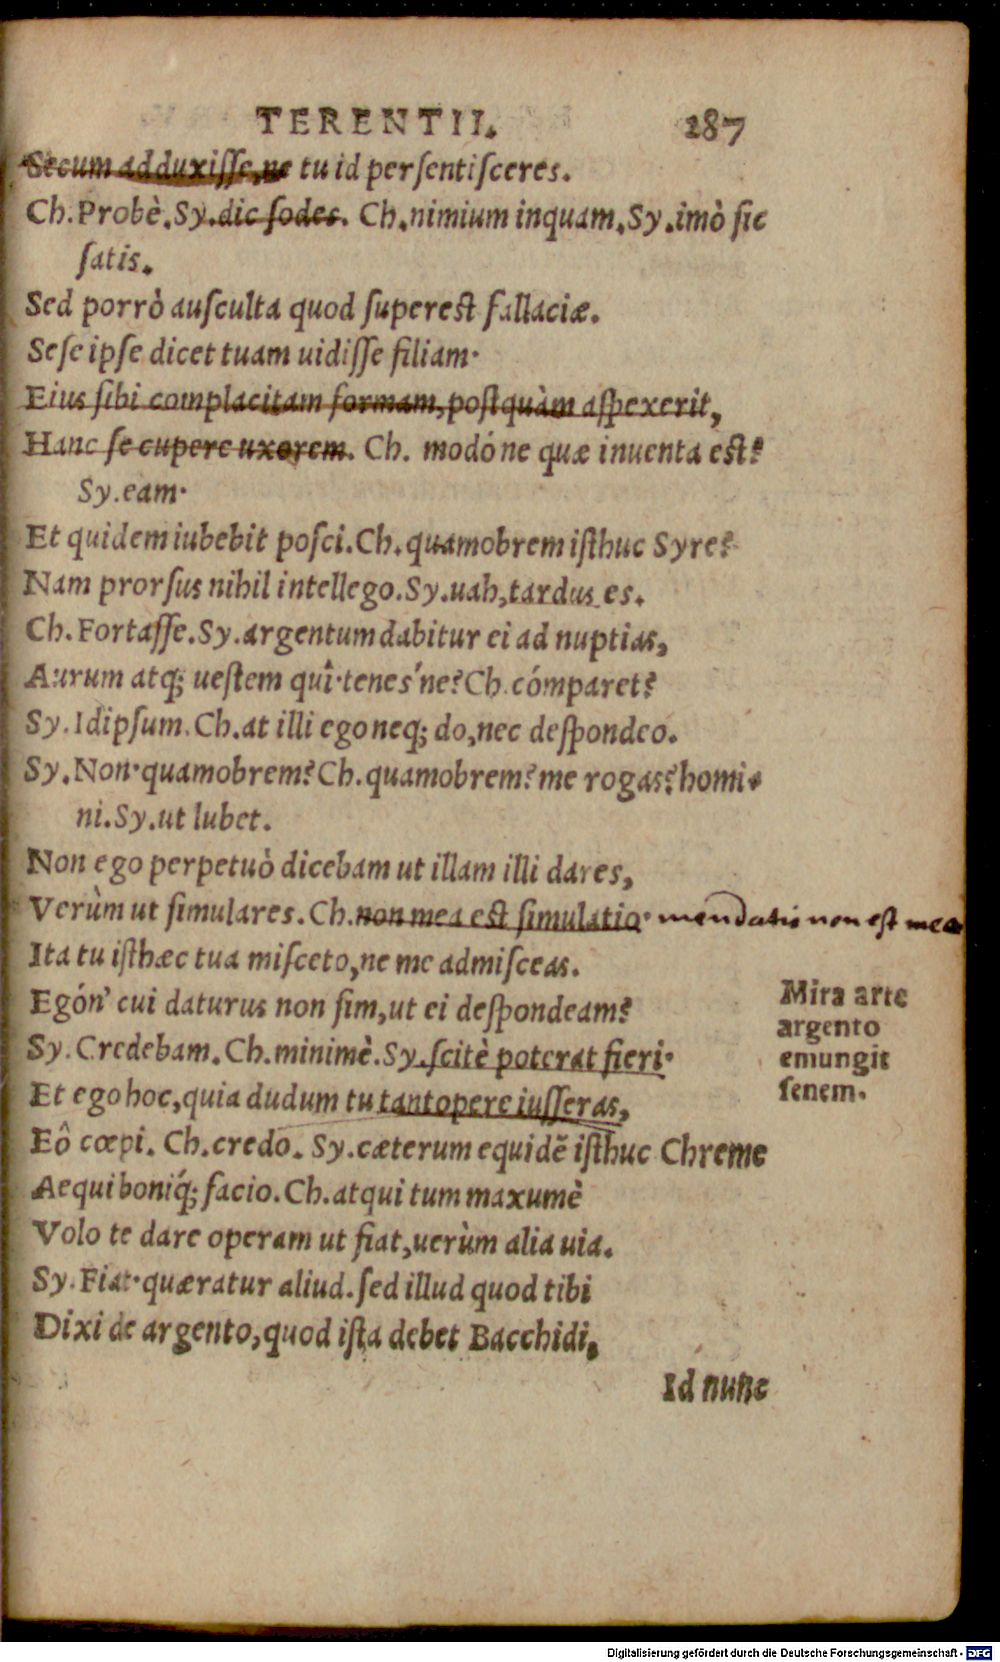 TERENTII. 287
Secum adduxisse, ne tu id persentisceres.
Ch. Probè. Sy. dic sodes. Ch. nimium inquam. Sy. imò sic
satis.
Sed porrò ausculta quod superest fallaciæ.
Sese ipse dicet tuam uidisse filiam·
Eius sibi complacitam formam, postquàm aspexerit,
Hanc se cupere uxorem. Ch. modóne quæ inuenta est?
Sy. eam·
Et quidem iubebit posci. Ch. quamobrem isthuc Syre?
Nam prorsus nihil intellego. Sy. uah, tardus es.
Ch. Fortasse. Sy. argentum dabitur ei ad nuptias,
Aurum atq; uestem quî· tenes'ne? Ch. cómparet?
Sy. Id ipsum. Ch. at illi ego neq; do, nec despondeo.
Sy. Non· quamobrem? Ch. quamobrem? me rogas? homi-
ni. Sy. ut lubet.
Non ego perpetuò dicebam ut illam illi dares,
Verùm ut simulares. Ch. non mea est simulatio· mendatio non est mea
Ita tu isthæc tua misceto, ne me admisceas.
Egón' cui daturus non sim, ut ei despondeam?
Mira arte
argento
emungit
senem.
Sy. Credebam. Ch. minimè. Sy. scitè poterat fieri·
Et ego hoc, quia dudum tu tantopere iusseras,
Eô cœpi. Ch. credo. Sy. cæterum equidẽ isthuc Chreme
Aequi boniq́; facio. Ch. atqui tum maxumè
Volo te dare operam ut fiat, uerùm alia uia.
Sy. Fiat· quæratur aliud. sed illud quod tibi
Dixi de argento, quod ista debet Bacchidi,
Id nunc
Digitalisierung gefördert durch die Deutsche Forschungsgemeinschaft - DFG